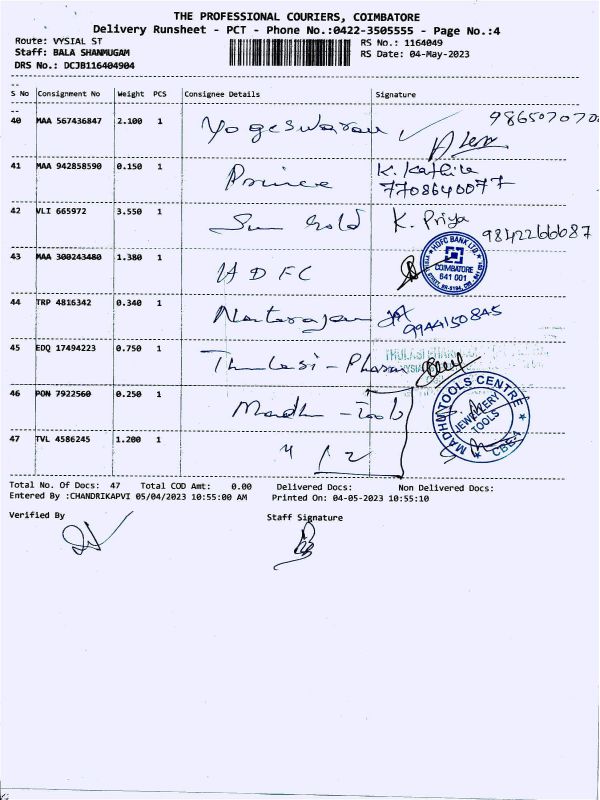 THE PROFESSIONAL COURIERS, COIMBATORE
Delivery Runsheet - PCT - Phone No.:0422-3505555 - Page No.:4
Route: VYSIAL ST
RS No.: 1164049
Staff: BALA SHANMUGAM
RS Date: 04-May-2023
DRS No.: DCJB116404904
S No Consignment No Weight PCS Consignee Details Signature
40 MAA 567436847 2.100 1 Yogeswaran
41 MAA 942858590 0.150 1 Prince K. Kathire
7708640077
42 VLI 665972 3.550 1 Sun Gold K. Priya
9842266687
43 MAA 300243480 1.380 1 HDFC
HDFC BANK LTD.
COIMBATORE
641 001
44 TRP 4816342 0.340 1 Natarajan
9944150845
45 EDQ 17494223 0.750 1 Thulasi - Pharma
46 PON 7922560 0.250 1 Madhu - Tools
MADHU TOOLS CENTRE
JEWELLERY
TOOLS
CBE-1
47 TVL 4586245 1.200 1 " 1/2
Total No. Of Docs: 47 Total COD Amt: 0.00 Delivered Docs: Non Delivered Docs:
Entered By :CHANDRIKAPVI 05/04/2023 10:55:00 AM Printed On: 04-05-2023 10:55:10
Verified By Staff Signature